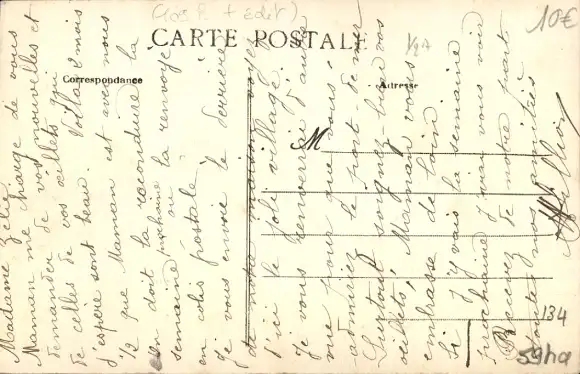 (10s R + édit)
10€
CARTE POSTALE
Correspondance
Adresse
M
134
Madame Zélie
Maman me charge de vous
demander de vos nouvelles et
de celles de vos œillets que
j'espère sont beau. Voilà 2 mois
1/2 que Maman est avec nous
on doit la reconduire la
semaine prochaine ou la renvoyer
en colis postale
Je vous envoie le derrière
de notre maison
d'ici le joli village.
Je vous renverrai l'autre
vue pour que vous
admiriez le port de mer
Surtout soignez bien vos
œillets! Maman vous
embrasse de loin
Si j'y vais la semaine
prochaine j'irai vous voir
Recevez de notre part
toutes nos amitiés